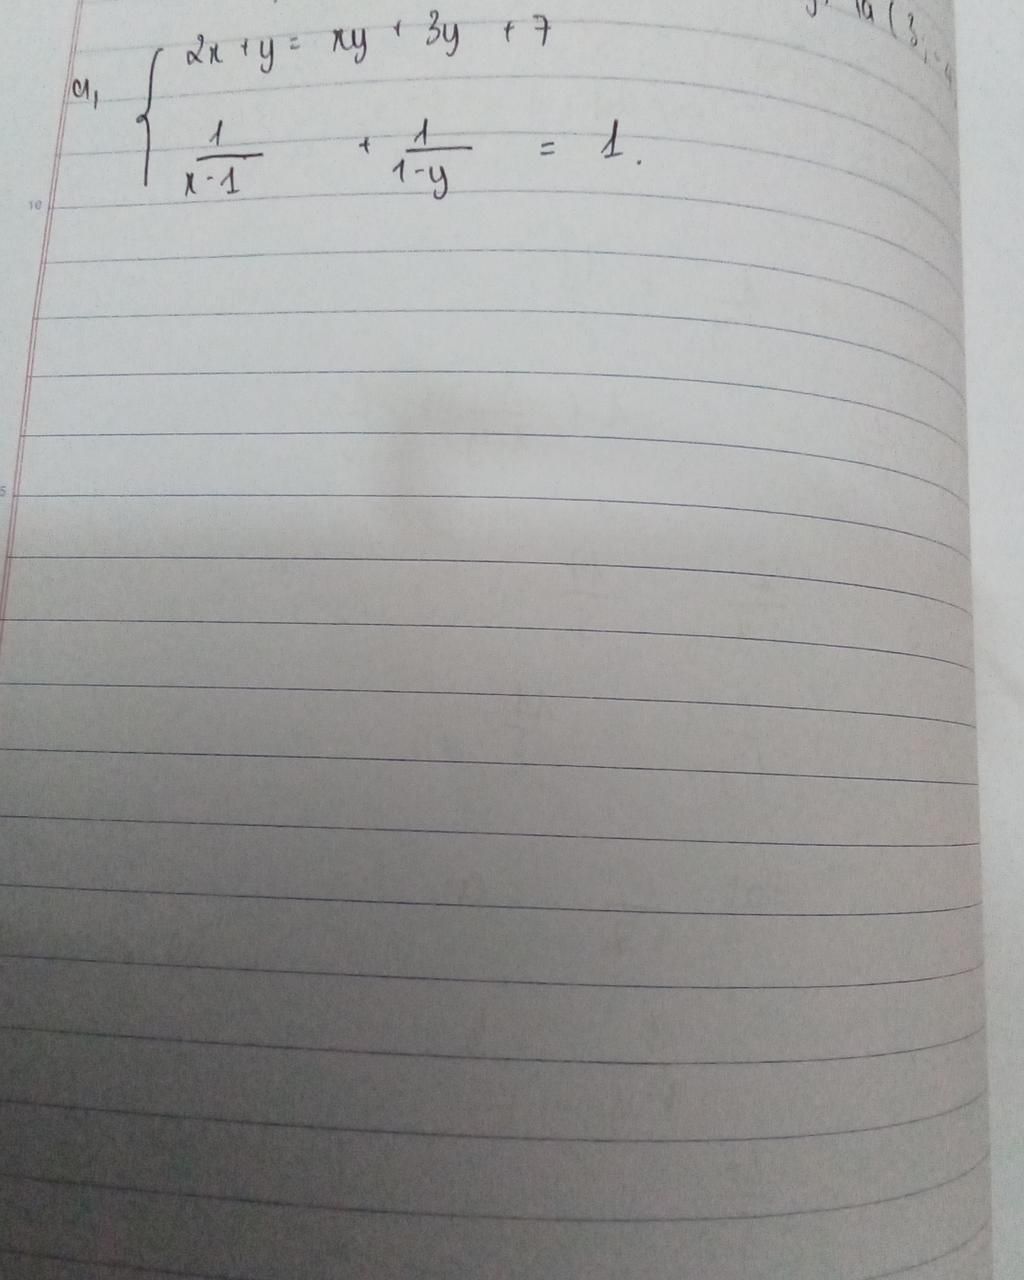 là (3;
a, { 2x + y = xy + 3y + 7
1/(x-1) + 1/(1-y) = 1.
10
5